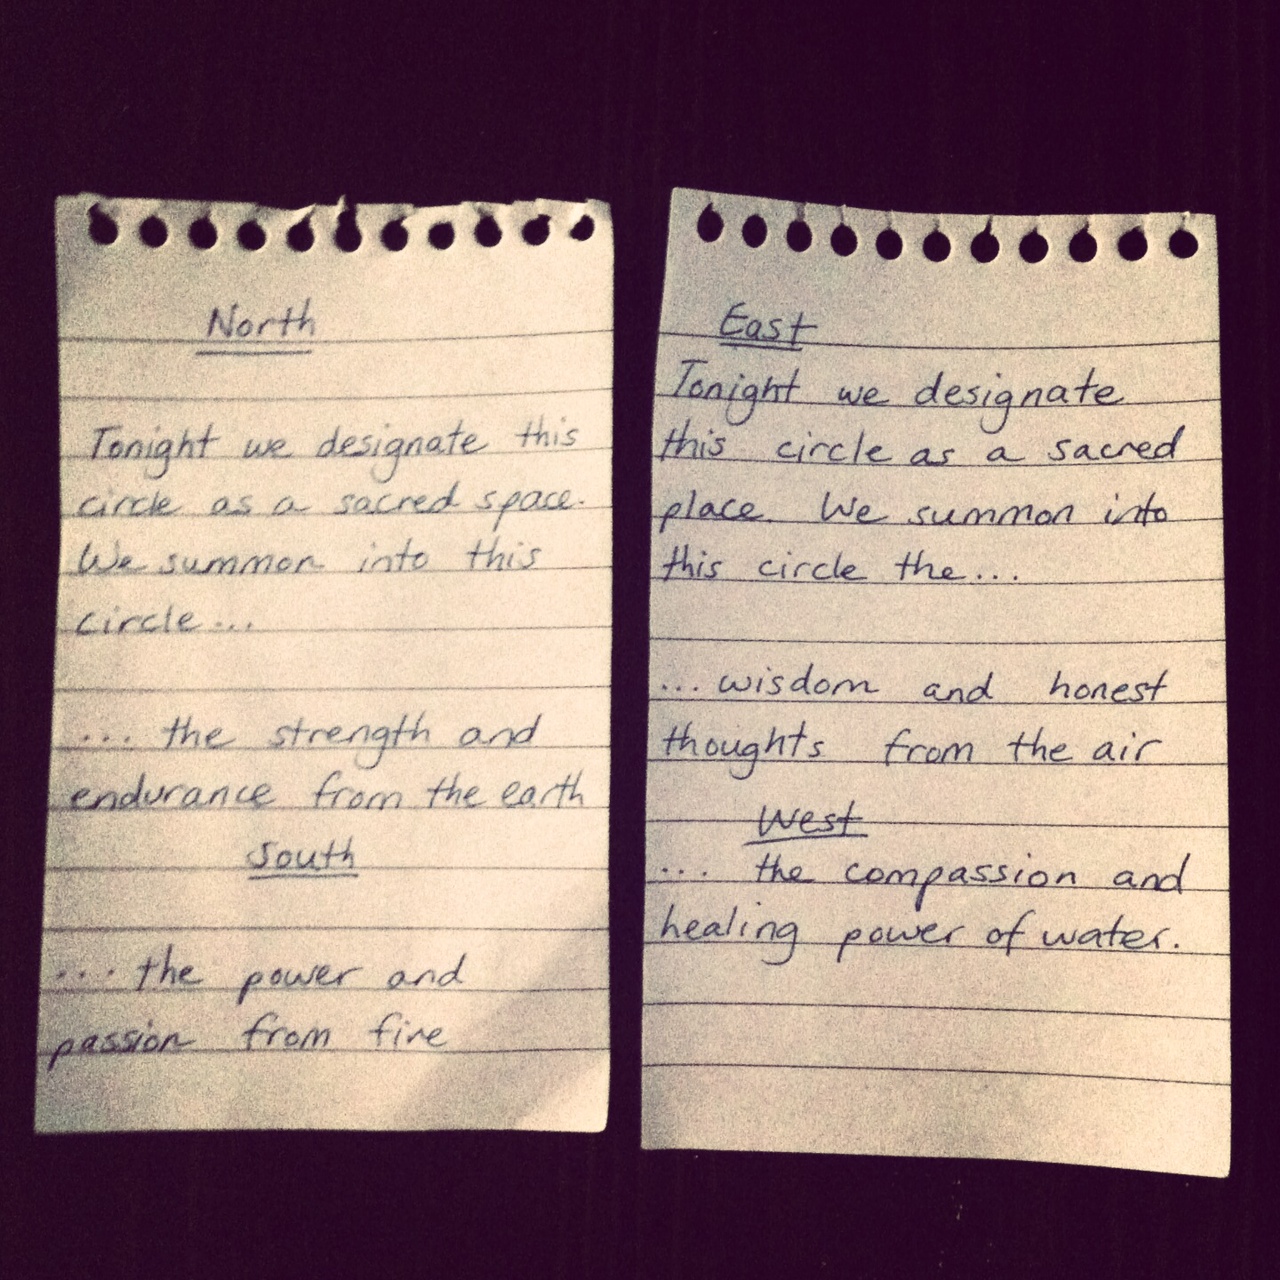 North
Tonight we designate this
circle as a sacred space.
We summon into this
circle...
... the strength and
endurance from the earth
South
.... the power and
passion from fire
East
Tonight we designate
this circle as a sacred
place. We summon into
this circle the...
... wisdom and honest
thoughts from the air
West
... the compassion and
healing power of water.